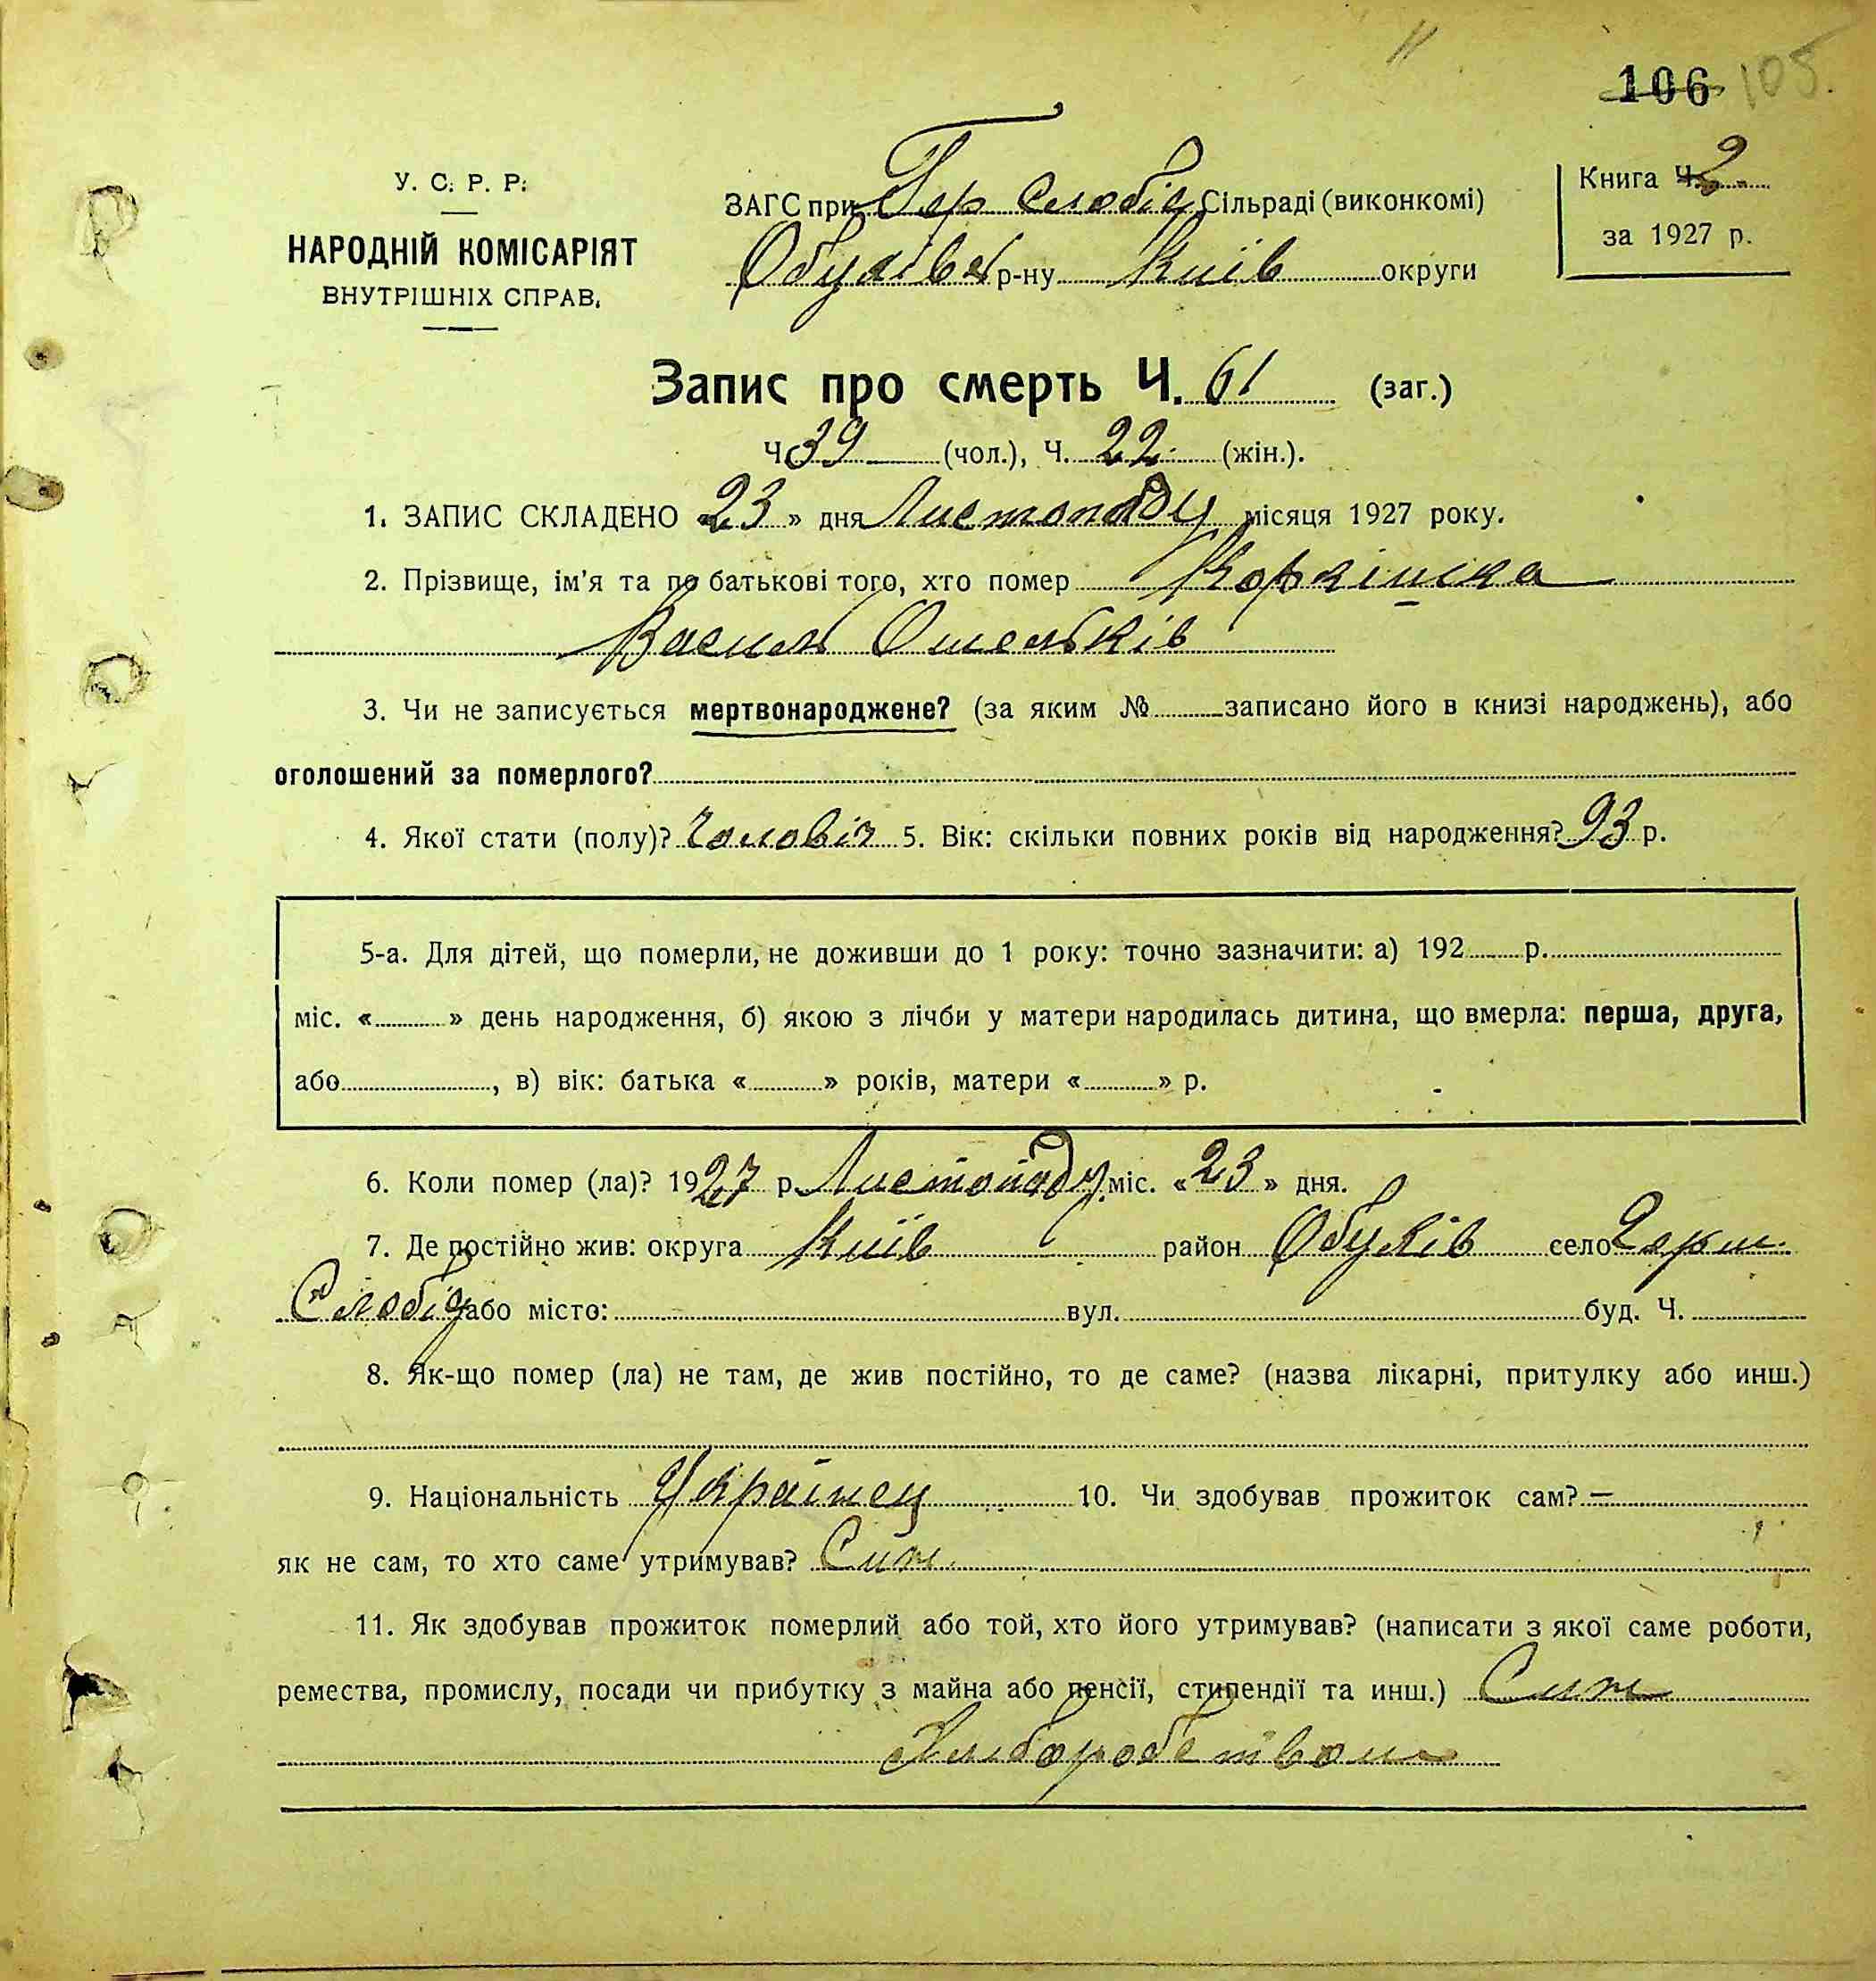 106 105.
У. С. Р. Р.
НАРОДНІЙ КОМІСАРІЯТ
ВНУТРІШНІХ СПРАВ.
ЗАГС при Гер Слобід Сільраді (виконкомі)
Обухівск р-ну Київ округи
Книга Ч. 2
за 1927 р.
Запис про смерть Ч. 61 (заг.)
Ч. 39 (чол.), Ч. 22 (жін.).
1. ЗАПИС СКЛАДЕНО «23» дня Листопаду місяця 1927 року.
2. Прізвище, ім'я та по батькові того, хто помер
Василь Омельків
3. Чи не записується мертвонароджене? (за яким № записано його в книзі народжень), або
оголошений за померлого?
4. Якої стати (полу)? Чоловіч 5. Вік: скільки повних років від народження? 93 р.
5-а. Для дітей, що померли, не доживши до 1 року: точно зазначити: а) 192 р.
міс. « » день народження, б) якою з лічби у матери народилась дитина, що вмерла: перша, друга,
або , в) вік: батька « » років, матери « » р.
6. Коли помер (ла)? 1927 р. Листопаду міс. «23» дня.
7. Де постійно жив: округа Київ район Обухів село Герм.
Слобід або місто: вул. буд. Ч.
8. Як-що помер (ла) не там, де жив постійно, то де саме? (назва лікарні, притулку або инш.)
9. Національність Українец 10. Чи здобував прожиток сам? —
як не сам, то хто саме утримував? Син
11. Як здобував прожиток померлий або той, хто його утримував? (написати з якої саме роботи,
ремества, промислу, посади чи прибутку з майна або пенсії, стипендії та инш.) Син
Хлиборобством